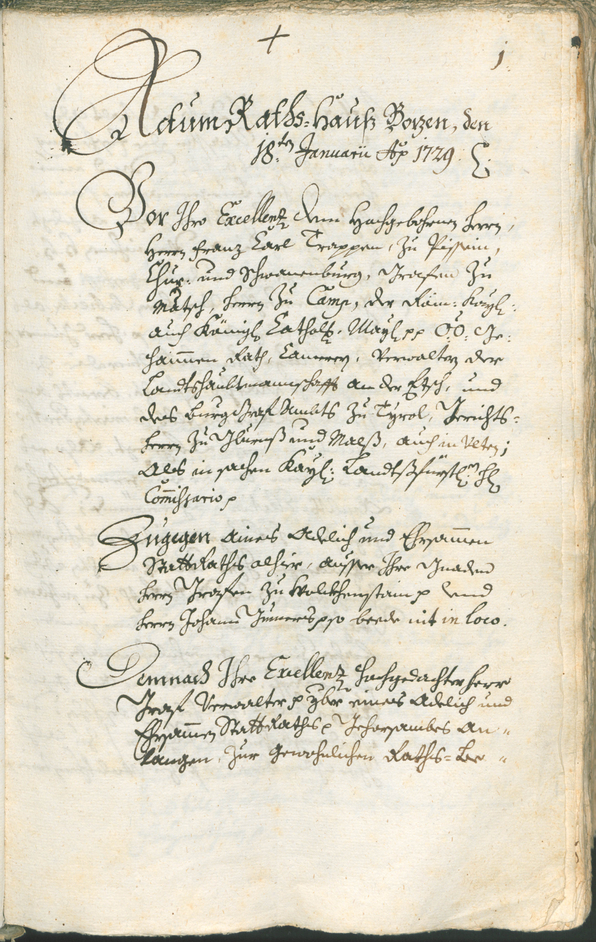 1
Actum Raths-Hauß Bozen, den
18.ten Januarii Ao 1729.
Vor Ihro Excellenz dem Hochgebohrnen Herrn,
Herrn Franz Carl Trappen, zu Pisein,
Chur- und Schwanenburg, Grafen zu
Mätsch, Herrn zu Camp, der Röm: Kayl:
auch Königl: Catholl: Mayl: pp OÖ: Ge-
haimmen Rath, Cammrern, Verwaltern der
Landtshaubtmannschafft an der Etsch, und
des Burggraf Ambts zu Tyrol, Gerichts-
herrn zu Glurnß und Malß, auch in Ulten;
Als in sachen Kayl: Landtsfürstl:
Commissario p
Zugegen aines Adelich und Ehrsammen
StattRaths alhier, ausser Ihre Gnaden
Herrn Grafen zu Wolkhenstain p und
Herrn Johann p so beede nit in loco.
Demnach Ihro Excellenz Hochgedachter Herr
Graf Verwalter p yber eines Adelich und
Ehrsammen StattRaths p Gehorsambes An-
langen, zur Gewohnlichen Raths-Be-